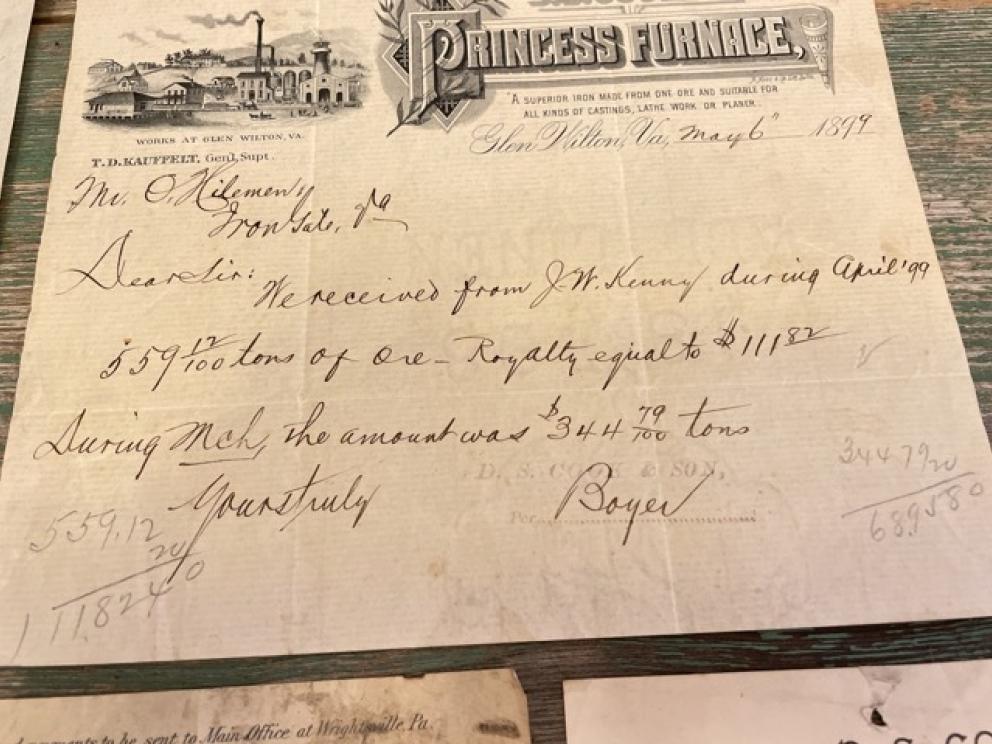 PRINCESS FURNACE,
"A SUPERIOR IRON MADE FROM ONE ORE AND SUITABLE FOR
ALL KINDS OF CASTINGS, LATHE WORK OR PLANER.
WORKS AT GLEN WILTON, VA.
Glen Wilton, Va, May 6" 1899
T. D. KAUFFELT, Genl. Supt.
Mr. O. Hilemen,
Iron Gate, Va
Dear Sir:
We received from J. W. Kenny during April '99
559 12/100 tons of Ore – Royalty equal to $111 82
During Mch, the amount was $344 79/100 tons
D. S. COOK & SON,
Yours truly
Per Boyer
344 79
20
68.9580
559.12
20
111.8240
to be sent to Main Office at Wrightsville, Pa.